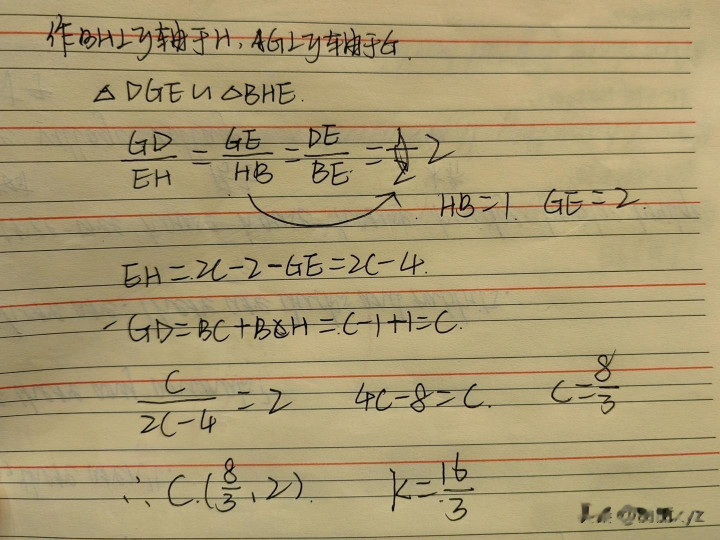 作BH⊥y轴于H,AG⊥y轴于G.
△DGE∽△BHE.
GD/EH = GE/HB = DE/BE = 2
HB=1. GE=2.
EH=2C-2-GE=2C-4.
GD=BC+BH=C-1+1=C.
C/(2C-4)=2 4C-8=C. C=8/3
∴C(8/3,2). K=16/3